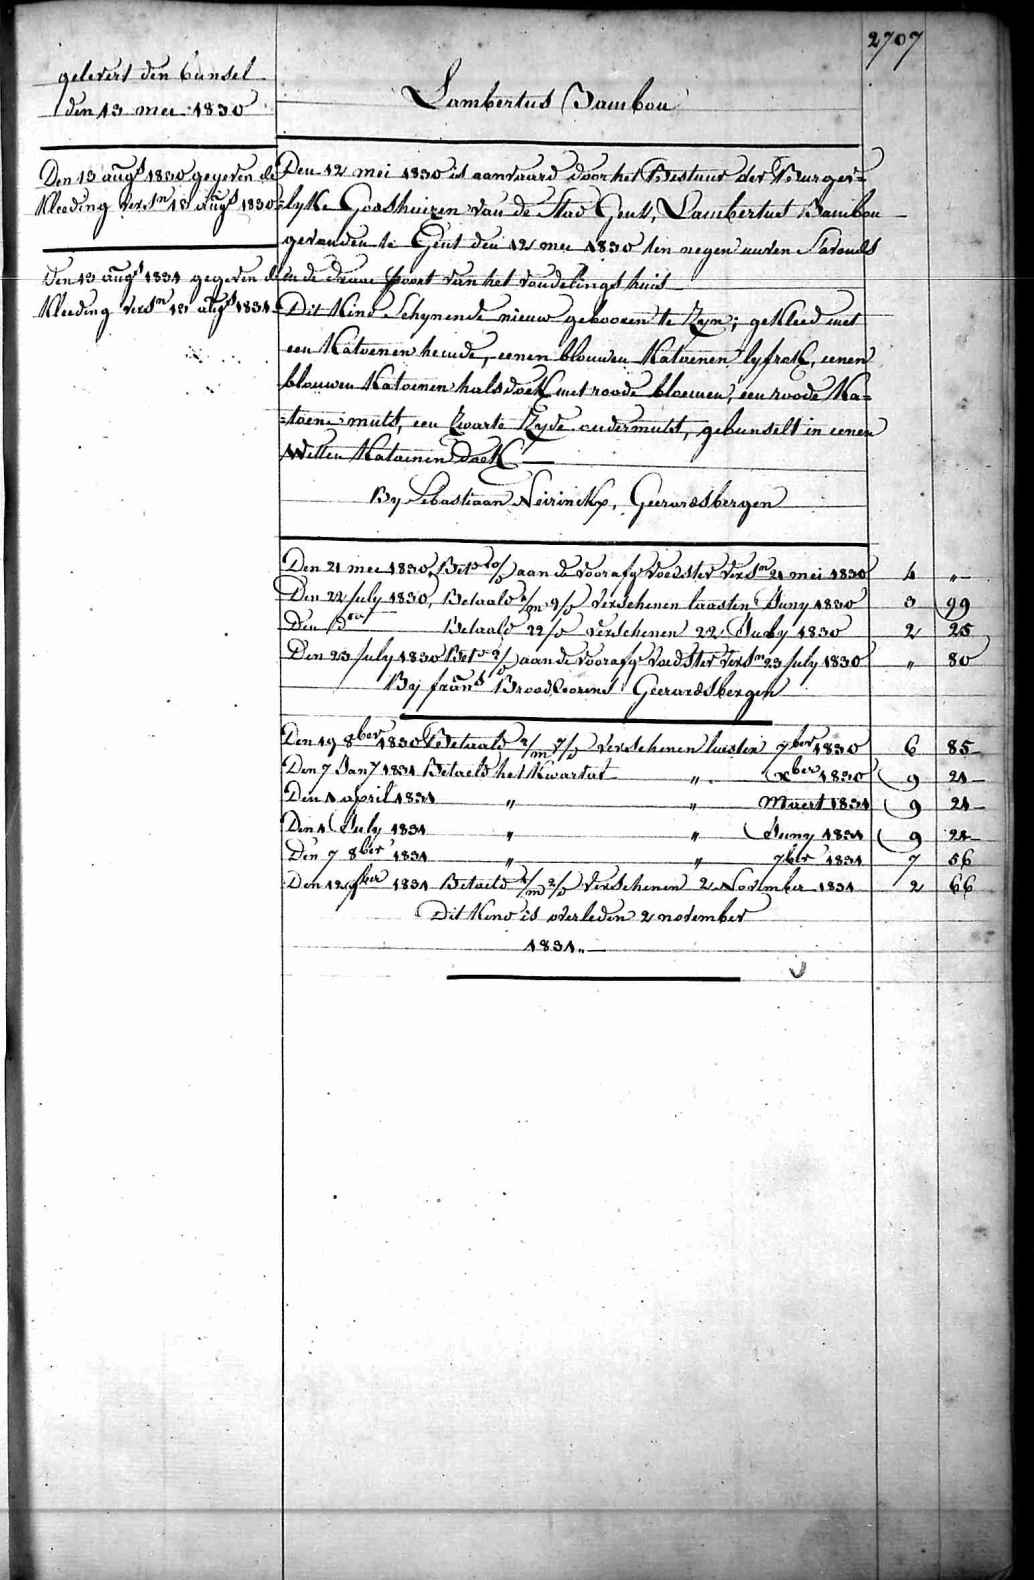 2707
gelevert den bunsel
den 13 mei 1830
Lambertus Bambou
Den 13 augt 1830 gegeven de
Kleeding versn 13 augt 1830
Den 13 augt 1831 gegeven de
Kleeding versn 13 augt 1831
Den 12 mei 1830 is aanvaard door het Bestuur der Burger=
=lyke Godshuizen van de Stad Gent, Lambertus Bambou
gevonden te Gent den 12 mei 1830 ten negen uuren s'avonds
in de poort van het vondelings huis
Dit Kind Schynende nieuw gebooren te zyn; gekleed met
een Katoenen hemde, eenen blouwen Katoenen lyfrok, eenen
blouwen Katoenen halsdoek met roode bloemen, een roode Ka=
=toene muts, een zwarte zyde ondermuts, gebunselt in eenen
Witten Katoenen Doek
By Sebastiaan Neirinckx, Geerardsbergen
Den 21 mei 1830, Betd 10/d aan de voorafge Voedster versn 21 mei 1830 4 "
Den 22 July 1830, Betaald 1/m 9/d verschenen laasten Juny 1830 3 99
Den do Betaald 22/d verschenen 22 July 1830 2 25
Den 23 July 1830 Betd /d aan de voorafge Voedster versn 23 July 1830 " 80
By frans Geerardsbergen
Den 19 8ber 1830 Betaald 2/m 7/d verschenen laasten 7ber 1830 6 85
Den 7 Jany 1831 Betaeld het Kwartal " Xber 1830 9 21
Den 1 april 1831 " " Maert 1831 9 21
Den 1 July 1831 " " Juny 1831 9 21
Den 7 8ber 1831 " " 7ber 1831 7 56
Den 12 9ber 1831 Betaeld 1/m 2/d verschenen 2 November 1831 2 66
Dit Kind is overleden 2 november
1831.